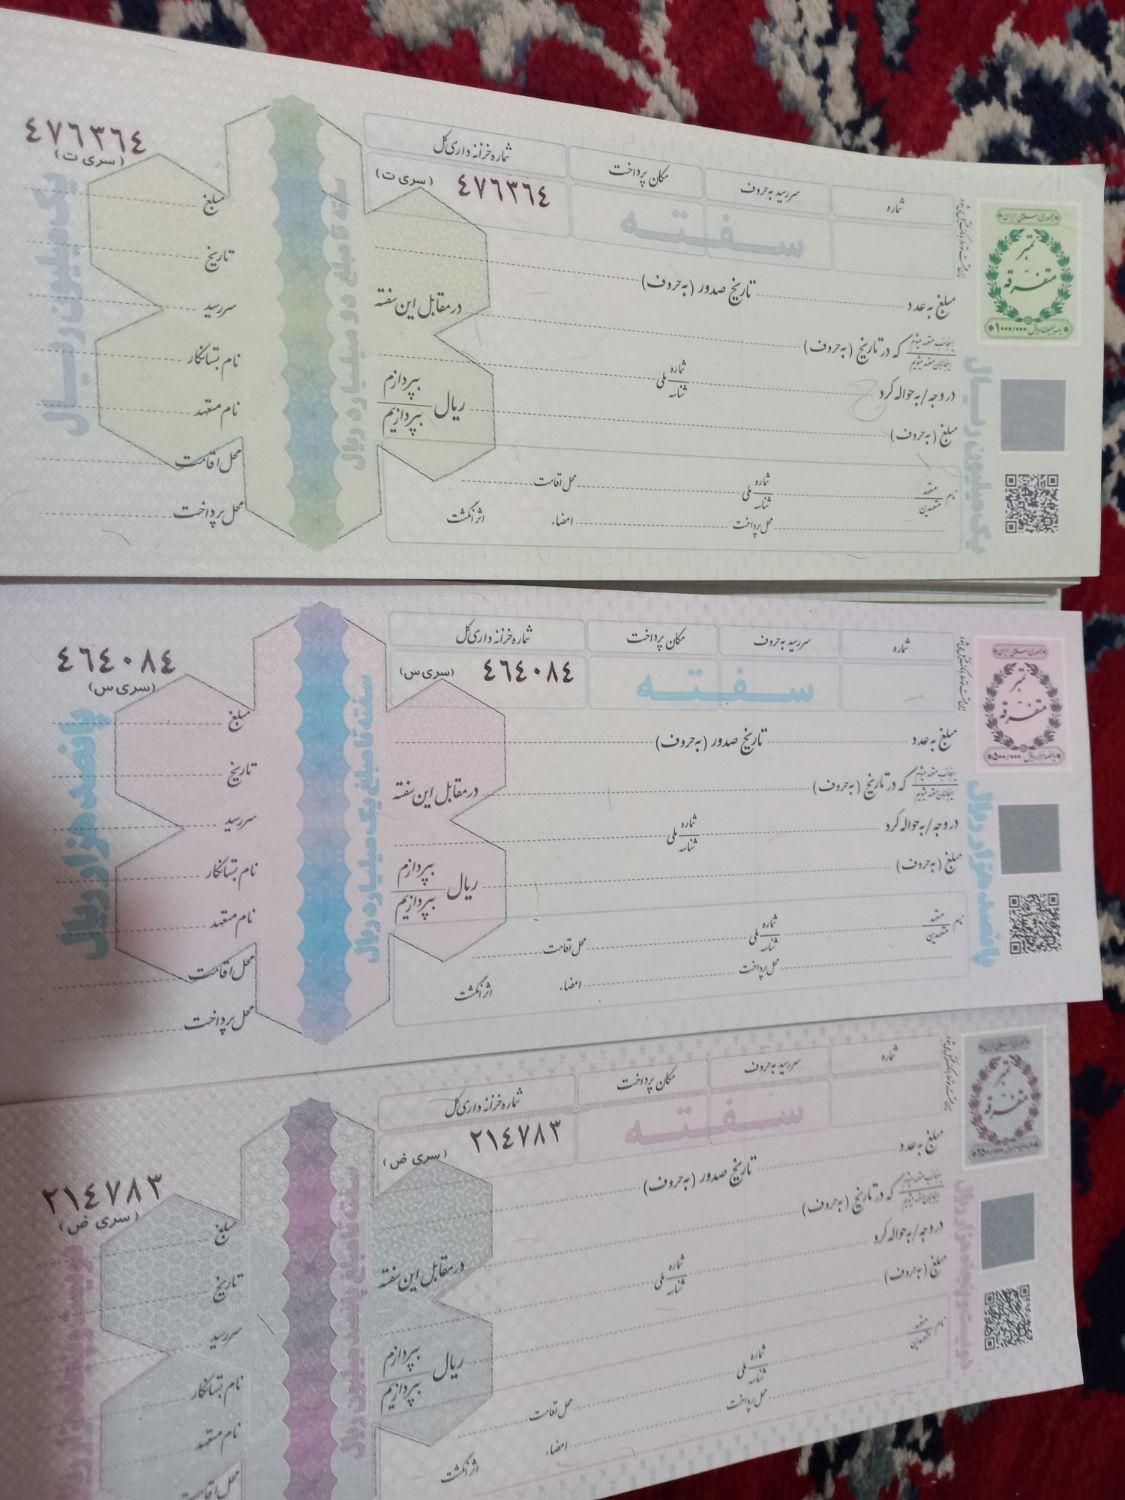 ٤٧٦٣٦٤
(سری ت)
یک میلیون ریال
مبلغ
تاریخ
سررسید
نام بستانکار
نام متعهد
محل اقامت
محل پرداخت
سفته تا مبلغ دو میلیارد ریال
شماره
سررسید به حروف
مکان پرداخت
شماره خزانه داری کل
٤٧٦٣٦٤ (سری ت)
سفته
مبلغ به عدد
تاریخ صدور (به حروف)
که در تاریخ (به حروف)
در مقابل این سفته
در وجه / به حواله کرد
شماره ملی شناسه
مبلغ (به حروف)
ریال
بپردازم
بپردازیم
نام متعهد متعهدین
شماره ملی شناسه
محل اقامت
محل پرداخت
امضاء
اثر انگشت
جمهوری اسلامی ایران
تمبر
متفرقه
۱۰۰۰/۰۰۰
یک میلیون ریال
٤٦٤٠٨٤
(سری س)
پانصد هزار ریال
مبلغ
تاریخ
سررسید
نام بستانکار
نام متعهد
محل اقامت
محل پرداخت
سفته تا مبلغ یک میلیارد ریال
شماره
سررسید به حروف
مکان پرداخت
شماره خزانه داری کل
٤٦٤٠٨٤ (سری س)
سفته
مبلغ به عدد
تاریخ صدور (به حروف)
که در تاریخ (به حروف)
در مقابل این سفته
در وجه / به حواله کرد
شماره ملی شناسه
مبلغ (به حروف)
ریال
بپردازم
بپردازیم
نام متعهد متعهدین
شماره ملی شناسه
محل اقامت
محل پرداخت
امضاء
اثر انگشت
جمهوری اسلامی ایران
تمبر
متفرقه
۵۰۰/۰۰۰
پانصد هزار ریال
٢١٤٧٨٣
(سری ض)
دویست و پنجاه هزار ریال
مبلغ
تاریخ
سررسید
نام بستانکار
نام متعهد
محل اقامت
سفته تا مبلغ پانصد میلیون ریال
شماره
سررسید به حروف
مکان پرداخت
شماره خزانه داری کل
٢١٤٧٨٣ (سری ض)
سفته
مبلغ به عدد
تاریخ صدور (به حروف)
که در تاریخ (به حروف)
در مقابل این سفته
در وجه / به حواله کرد
شماره ملی شناسه
مبلغ (به حروف)
ریال
بپردازم
بپردازیم
نام متعهد متعهدین
شماره ملی شناسه
محل اقامت
محل پرداخت
امضاء
اثر انگشت
جمهوری اسلامی ایران
تمبر
متفرقه
دویست و پنجاه هزار ریال